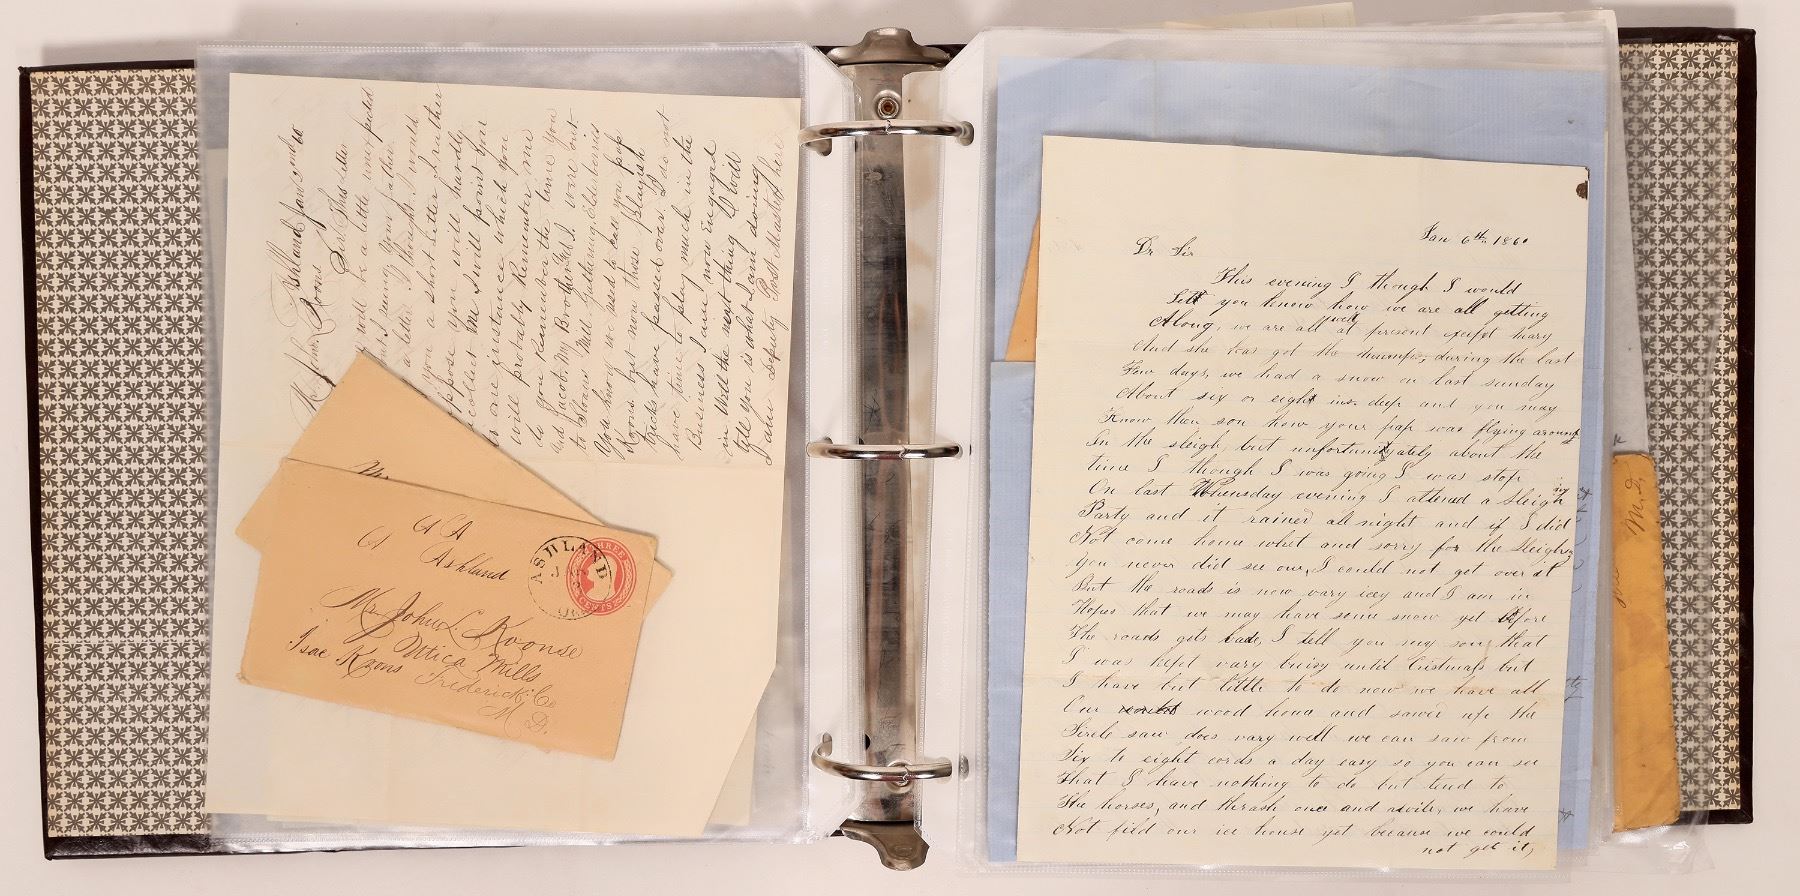 Ashland Jan
Mr John Koons
Sir This letter
will be a little unexpected
I seeing your father
a letter I thought I would
you a short letter I rather
suppose you will hardly
recollect me I will point your
one instance which you
will probably Remember me
to you remember the time you
and Jacob My Brother and I were out
to Sloans Mill gathering Elderberris
You know we used to call you pap
Koons but now those Playish
tricks have passed over I do not
have time to play much in the
Business I am now Engaged
in Well the next thing I will
tell you is what I am doing
I am deputy Post Master here
M
A A
A Ashland
ASHLAND
THREE
CENTS
Mr. John L Koonse
Utica Mills
Isac Koons Frederick Co
M D.
Jan 6th 1860
Dr Sir
This evening I though I would
Lett you know how we are all getting
Along, we are all well at present exsept mary
And she has got the mumps, during the last
Few days, we had a snow on last sunday
About six or eight ins. deep and you may
Know then son how your pap was flying around
In the sleigh, but unfortunately about the
time I though I was going I was stop
On last Whensday evening I attend a Sleighing
Party and it rained all night and if I did
Not come home whet and sorry for the Sleighing
You never did see one, I could not get over it
But the roads is now vary icey and I am in
Hopes that we may have some snow yet before
The roads gets bade, I tell you my son that
I was kept vary buisy until Cristmass but
I have but little to do now we have all
Our wood home and sawed up the
Sircle saw does vary well we can saw from
Six to eight cords a day easy so you can see
That I have nothing to do but tend to
The horses, and thrash once and awile, we have
Not fild our ice house yet because we could
not get it,
M.D.